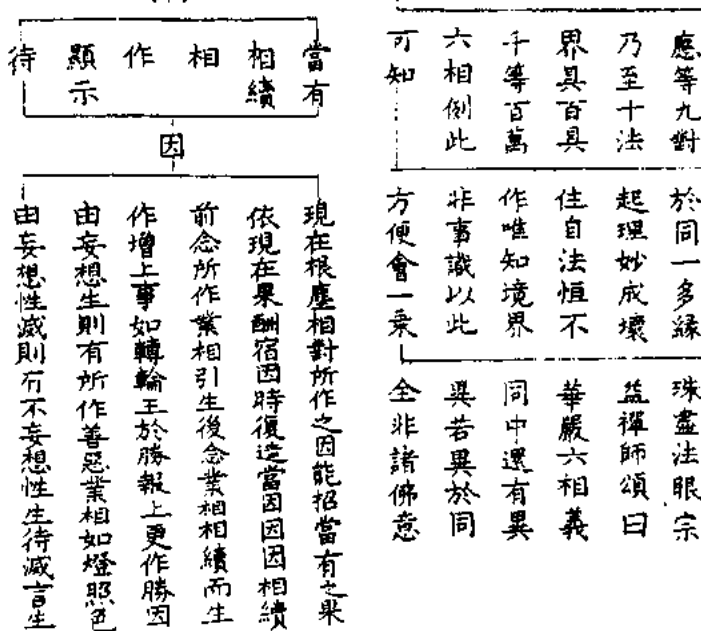 應等九對
乃至十法
界具百具
千等百萬
六相例此
可知
於同一多緣
起理妙成壞
住自法恒不
作唯知境界
非事識以此
方便會一乘
珠盡法眼宗
益禪師頌曰
華嚴六相義
同中還有異
異若異於同
全非諸佛意
當有
相續
相
作
顯示
待
因
現在根塵相對所作之因能招當有之果
依現在果酬宿因時復造當因因因相續
前念所作業相引生後念業相相續而生
作增上事如轉輪王於勝報上更作勝因
由妄想生則有所作善惡業相如燈照色
由妄想性滅則有不妄想性生待滅言生